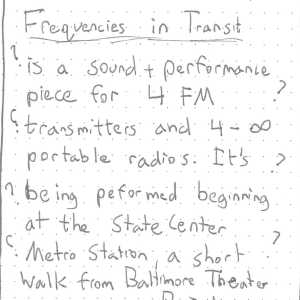 Frequencies in Transit
is a sound + performance
piece for 4 FM ?
transmitters and 4 - ∞
portable radios. It's ?
being peformed beginning
at the State Center
Metro Station, a short ?
walk from Baltimore Theater